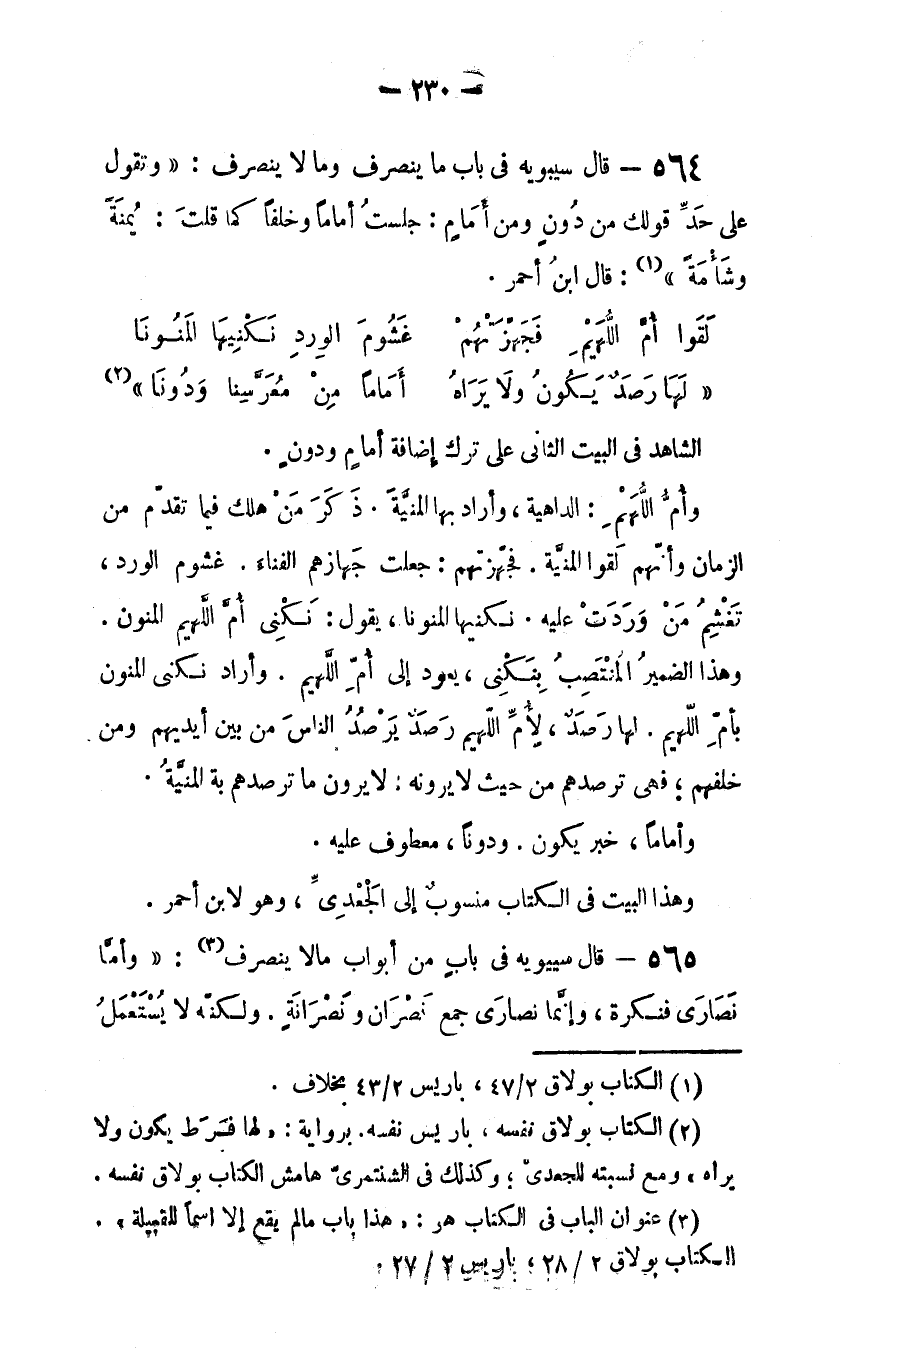 — ٢٣٠ —
٥٦٤ — قال سيبويه فى باب ما ينصرف وما لا ينصرف : « وتقول
على حَدِّ قولك من دُونٍ ومن أَمَامٍ : جلستُ أماماً وخلفاً كما قلتَ : يُمنَةً
وشَأْمَةً »(١) : قال ابنُ أحمر .
لَقَوا أُمَّ اللُّهَيْمِ فَجَهَّزَتْهُمْ غَشُومَ الوِردِ نَكْنِيهَا المَنُونَا
« لَهَا رَصَدٌ يَكُونُ ولَا يَرَاهُ أَمَاماً مِنْ مُعَرَّسِنا وَدُونَا »(٢)
الشاهد فى البيت الثانى على ترك إضافة أمامٍ ودونٍ .
وأُمُّ اللُّهَيْمِ : الداهية ، وأراد بها المنيَّةَ . ذَكَرَ مَنْ هلك فيما تقدّم من
الزمان وأنّهم لَقوا المنيَّة . فجهّزتهم : جعلت جَهازهم الفناء . غشوم الورد ،
تَغْشِمُ مَنْ وَرَدَتْ عليه . نكنيها المنونا ، يقول : نَكْنِى أُمَّ اللُّهيم المنون .
وهذا الضميرُ المُنْتَصِبُ بِنَكْنِى ، يعود إلى أُمِّ اللَّهيم . وأراد نكنى المنون
بأمِّ اللّهيم . لها رَصَدٌ ، لِأُمِّ اللّهيم رَصَدٌ يَرْصُدُ الناسَ من بين أيديهم ومن
خلفهم ؛ فهى ترصدهم من حيث لايرونه : لايرون ما ترصدهم بة المنيَّةُ .
وأماماً ، خبر يكون . ودوناً ، معطوف عليه .
وهذا البيت فى الكتاب منسوبٌ إلى الجَعْدِىِّ ، وهو لابن أحمر .
٥٦٥ — قال سيبويه فى بابٍ من أبواب مالا ينصرف(٣) : « وأمَّا
نَصَارَى فنكرة ، وإنَّما نصارَى جمع نَصْرَان ونَصْرَانَةٍ . ولكنّه لا يُسْتَعْمَلُ
(١) الكتاب بولاق ٤٧/٢ ، باريس ٤٣/٢ بخلاف .
(٢) الكتاب بولاق نفسه ، باريس نفسه. برواية : « لها فَرَط يكون ولا
يراه » ومع نسبته للجعدىّ ؛ وكذلك فى الشنتمرىّ هامش الكتاب بولاق نفسه .
(٣) عنوان الباب فى الكتاب هو : « هذا باب مالم يقع إلا اسماً للقبيلة » .
الكتاب بولاق ٢ / ٢٨ ، باريس ٢ / ٢٧ .